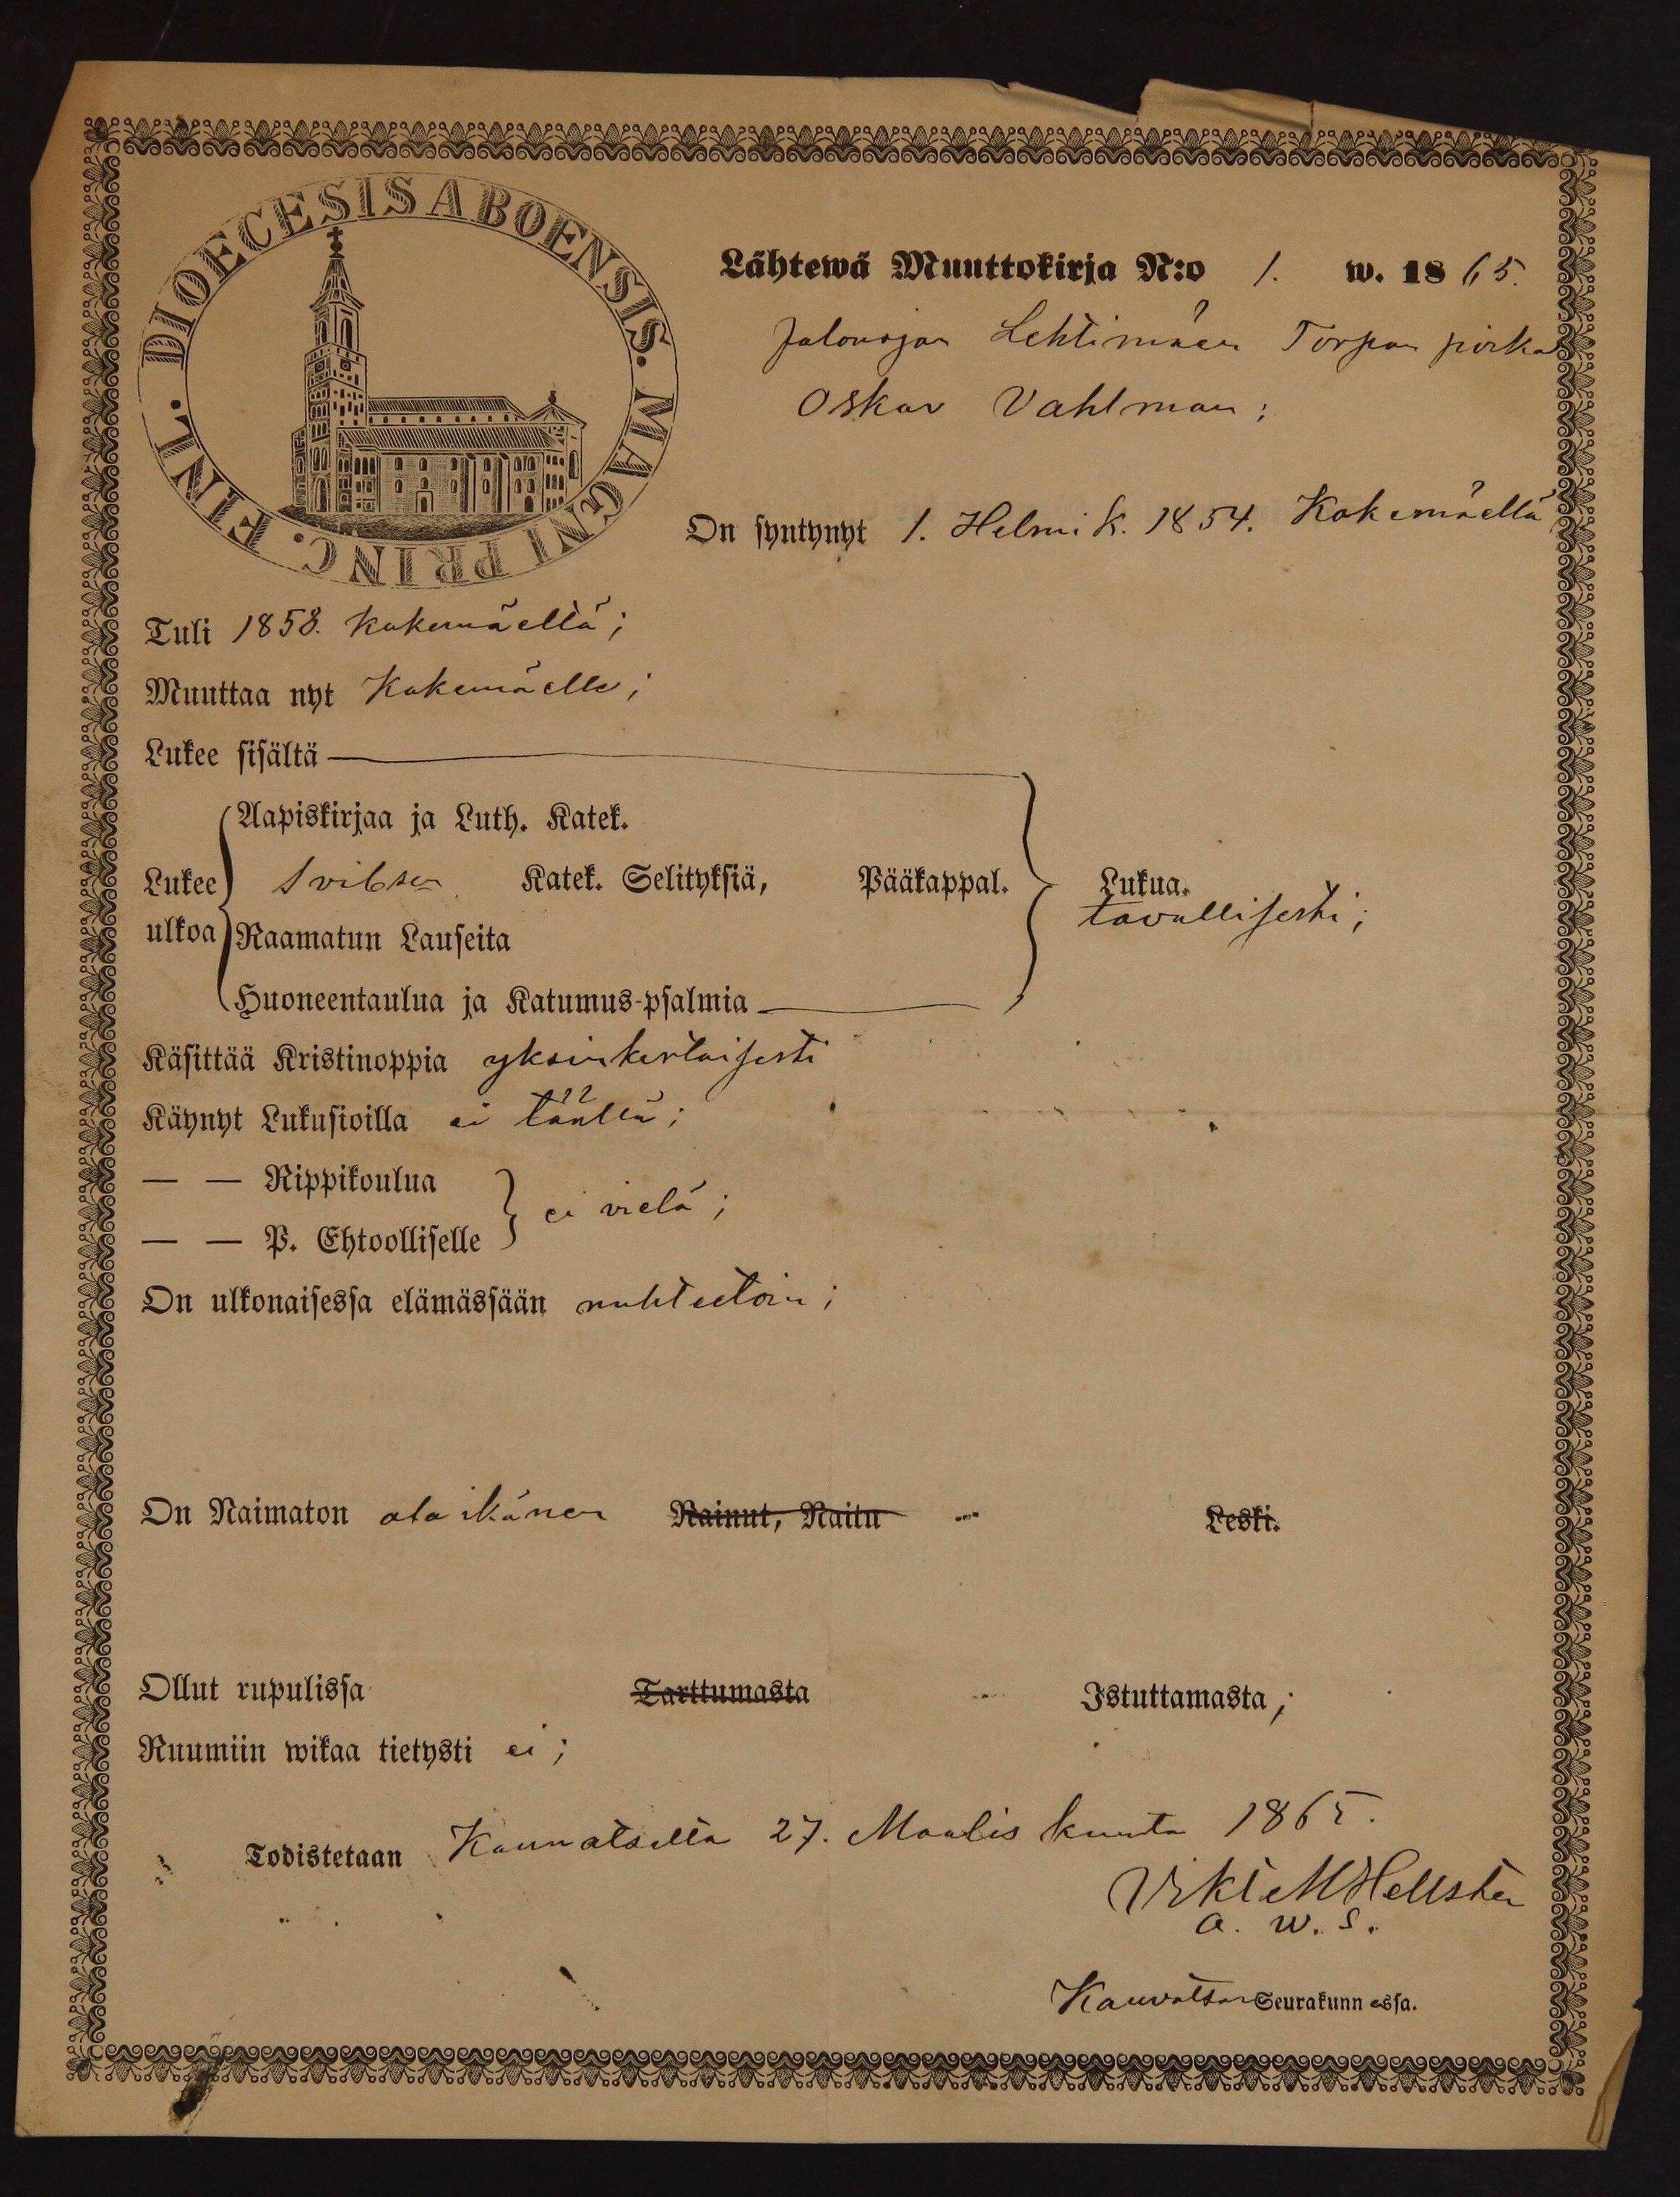 DIOECESIS ABOENSIS. MAGNI PRINC. FINL.
Lähtewä Muuttokirja N:o 1. w. 1865.
Jalonojan Lehtimäen Torpan poika
Oskar Vahlman;
On syntynyt 1. Helmi k. 1854. Kokemäellä
Tuli 1858. Kokemäeltä;
Muuttaa nyt Kokemäelle;
Lukee sisältä
Aapiskirjaa ja Luth. Katek.
Lukee Svibsen Katek. Selityksiä, Pääkappal. Lukua.
tavallisesti;
ulkoa Raamatun Lauseita
Huoneentaulua ja Katumus-psalmia
Käsittää Kristinoppia yksinkertaisesti
Käynyt Lukusioilla ei täällä;
— — Rippikoulua
ei vielä;
— — P. Ehtoolliselle
On ulkonaisessa elämässään nuhteetoin;
On Naimaton ala ikänen Nainut, Naitu Leski.
Ollut rupulissa Tarttumasta Istuttamasta;
Ruumiin wikaa tietysti ei;
Todistetaan Kauvatsalla 27. Maalis kuuta 1865.
Hellsten
a. w. s.
Kauvatsan Seurakunnassa.